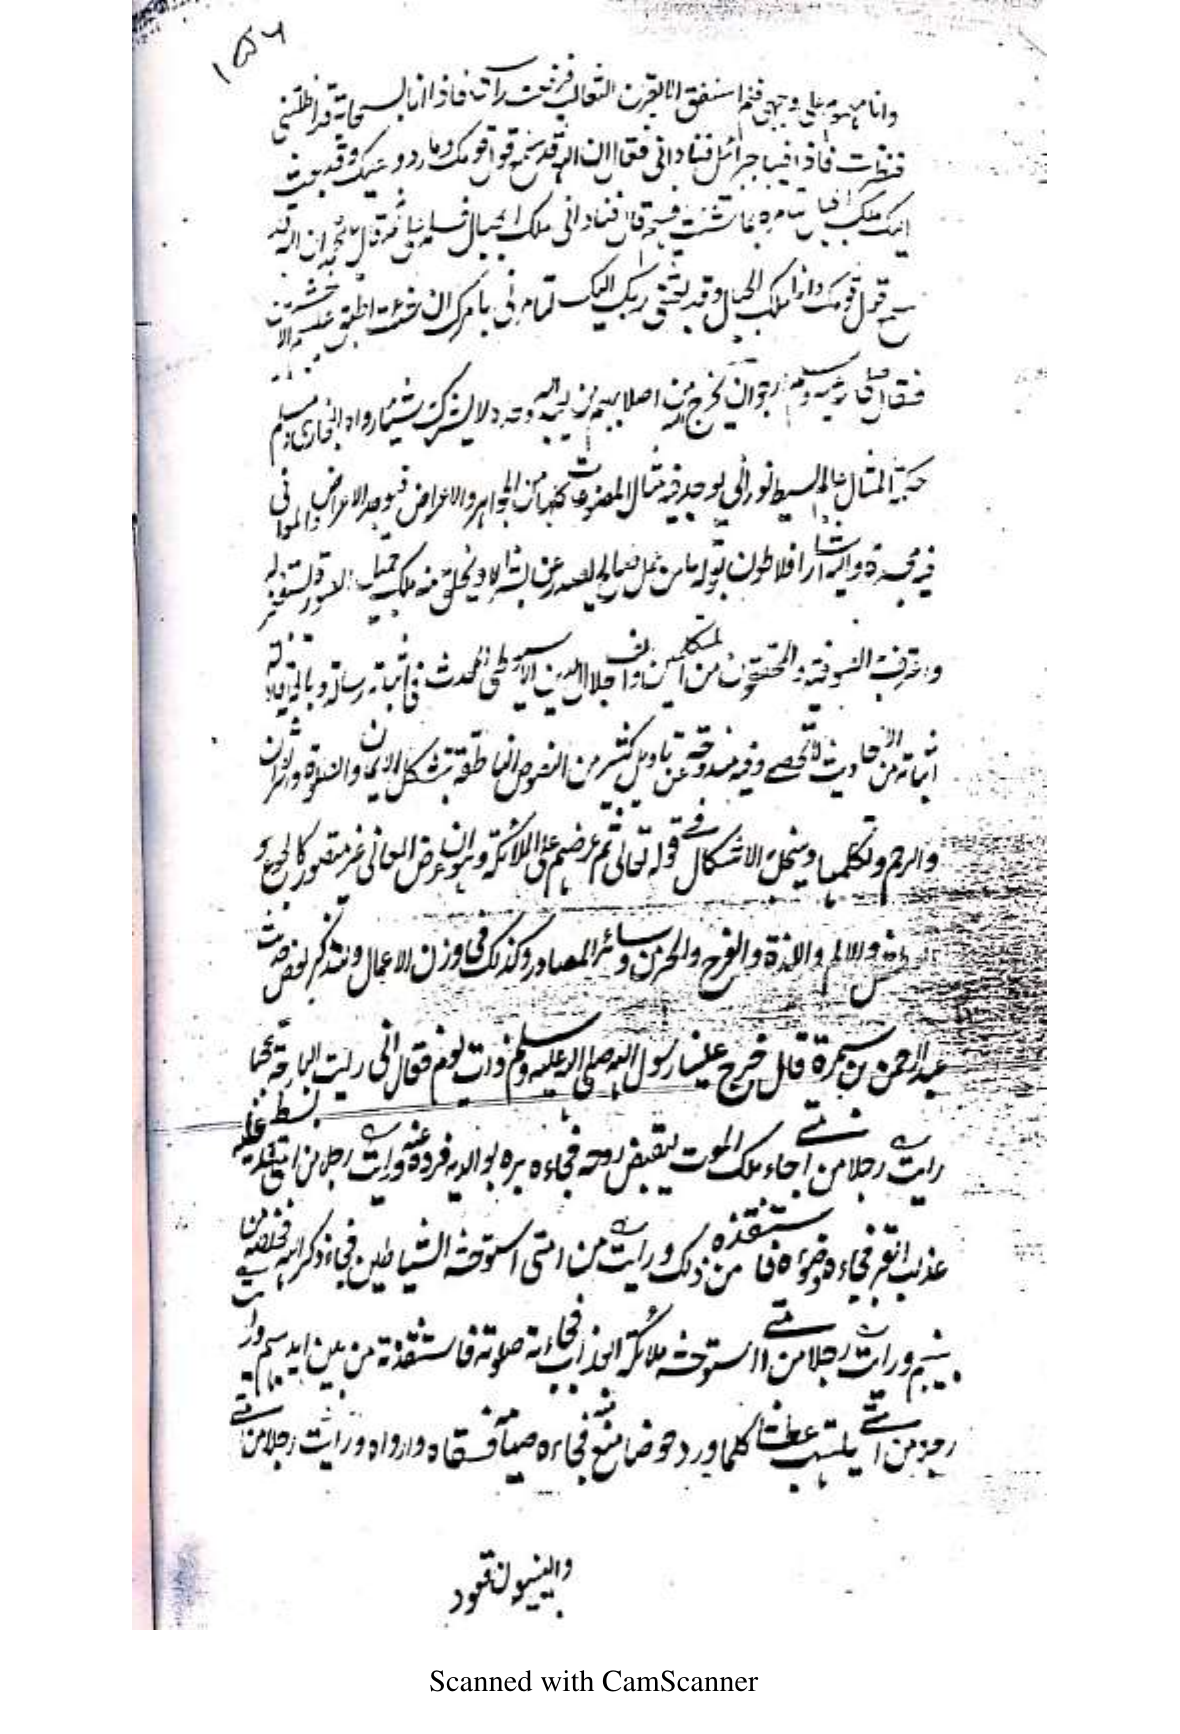 وانا مهموم على وجهي فلم استفق الا بقرن الثعالب فرفعت راسي فاذا انا بسحابة قد اظلتني
فنظرت فاذا فيها جبرائيل فناداني فقال ان الله قد سمع قول قومك وما ردوا عليك وقد بعث
اليك ملك الجبال لتامره بما شئت فيهم قال فناداني ملك الجبال فسلم علي ثم قال يا محمد ان الله قد
سمع قول قومك وانا ملك الجبال وقد بعثني ربك اليك لتامرني بامرك ان شئت اطبق عليهم الاخشبين
فقال صلى الله عليه وسلم ارجو ان يخرج من اصلابهم من يعبد الله وحده لا يشرك شيئا رواه البخاري ومسلم
المثال عالم بسيط نوراني يوجد فيه مثال من الجواهر والاعراض فيوجد الاعراض والمعاني
فيه واليه اشار افلاطون بقوله ما من عمل صالح يصدر عن بشر الا ويخلق منه ملك جميل الصورة يستغفر له
و الصوفية والمحققون من المتكلمين والف جلال الدين الاسيوطي المحدث في اثباته رسالة وبالغ في
اثباته من الاحاديث لا تحصى وفيه مندوحة عن تاويل كثير من النصوص الناطقة بتشكل الايمان والصلوة والقران
والرحم وتكلمها وينحل الاشكال في قوله تعالى ثم عرضهم على الملائكة وهو ان عرض المعاني غير متصور كالجوع و
والالم واللذة والفرح والحزن وسائر المصادر وكذلك في وزن الاعمال ولنذكر بعض
عبد الرحمن بن سمرة قال خرج علينا رسول الله صلى الله عليه وسلم ذات يوم فقال اني رايت البارحة عجبا
رايت رجلا من امتي جاء ملك الموت ليقبض روحه فجاءه بره بوالديه فرده عنه ورايت رجلا من امتي قد بسط عليه
عذاب القبر فجاءه وضوءه فاستنقذه من ذلك ورايت من امتي استوحشه الشياطين فجاء ذكر الله فخلصه من
بينهم ورايت رجلا من امتي استوحشه ملائكة العذاب فجاءته صلوته فاستنقذته من بين ايديهم ورايت
رجلا من امتي يلتهب عطشا كلما ورد حوضا منع منه فجاءه صيامه فسقاه وارواه ورايت رجلا من امتي
والنبيون قعود
Scanned with CamScanner